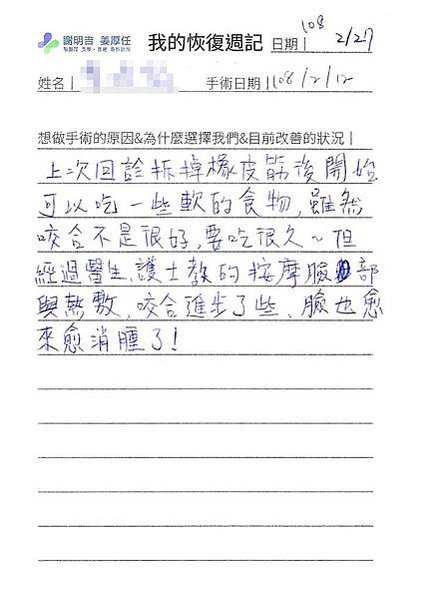 謝明吉 姜厚任 我的恢復週記 日期| 108 2/27
姓名| 手術日期| 108/2/12
想做手術的原因&為什麼選擇我們&目前改善的狀況|
上次回診拆掉橡皮筋後開始
可以吃一些軟的食物,雖然
咬合不是很好,要吃很久~但
經過醫生、護士教的按摩臉部
與熱敷,咬合進步了些,臉也愈
來愈消腫了!